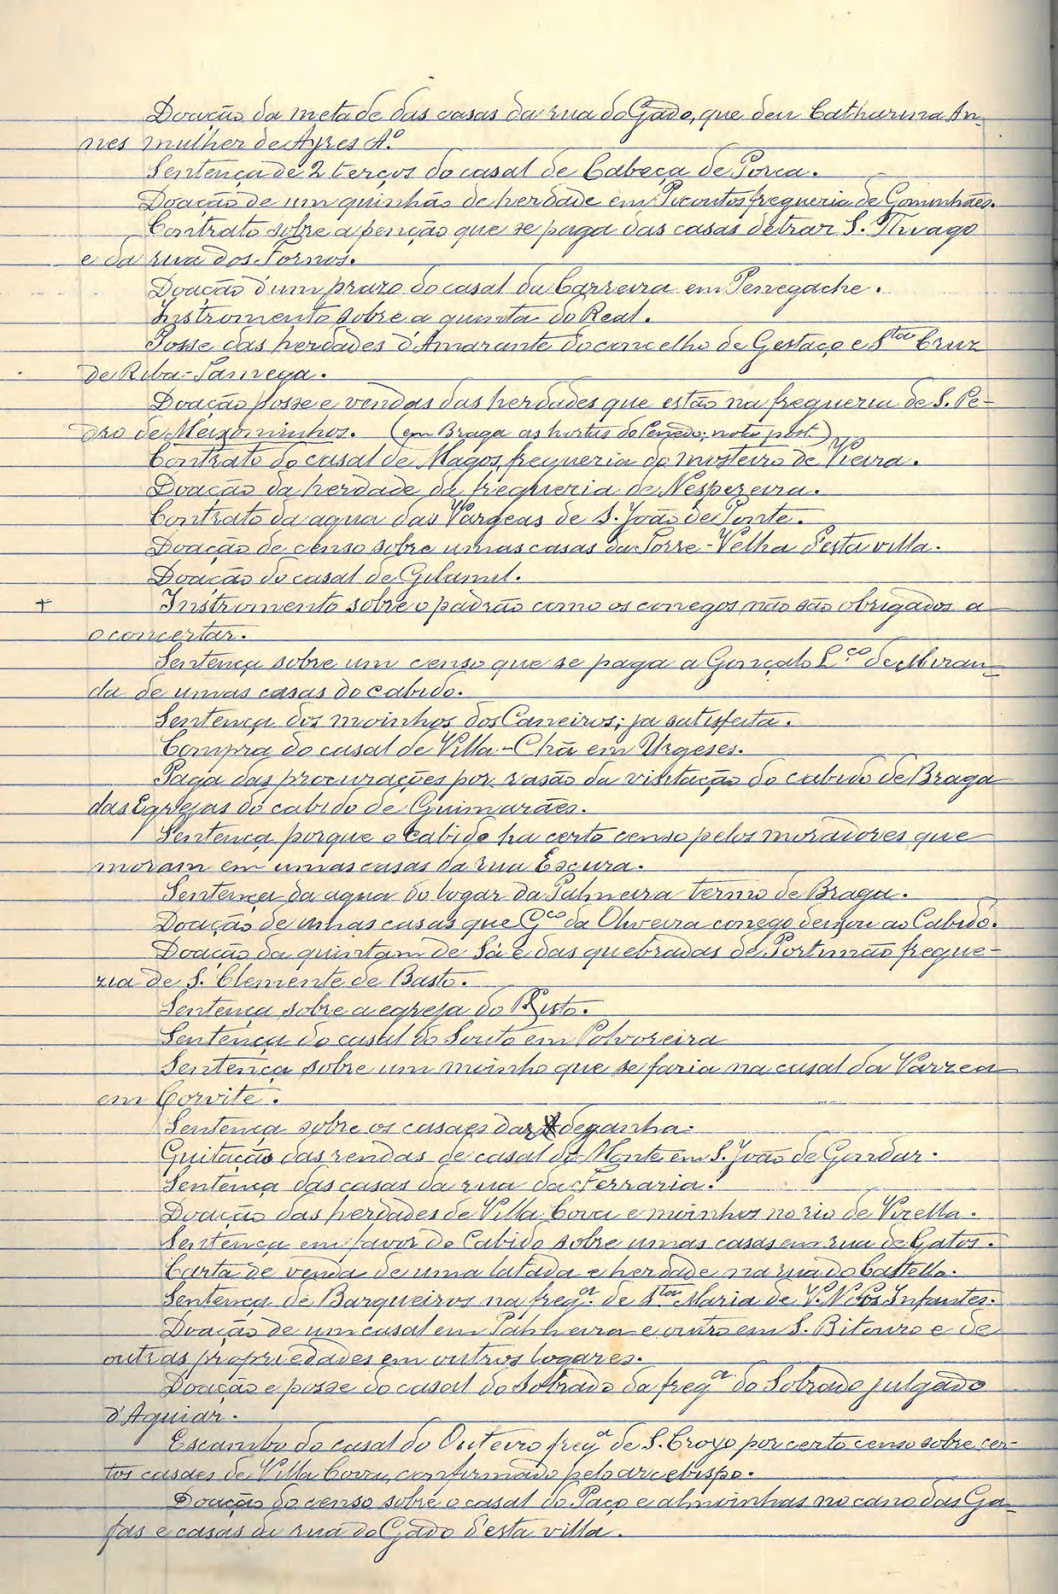 Doação da metade das casas da rua do Gado, que deu Catharina An-
nes mulher de Ayres Aº
Sentença de 2 terços do casal de Cabeça de Porca.
Doação de um quinhão de herdade em Pocontos freguezia de Gominhães.
Contrato sobre a penção que se paga das casas detraz S. Thiago
e da rua dos Fornos.
Doação d'um prazo do casal da Carreira em Penegache.
Instromento sobre a quinta do Real.
Posse das herdades d'Amarante do concelho de Gestaço e Sta Cruz
de Riba-Tamega.
Doação posse e vendas das herdades que estão na freguezia de S. Pe-
dro de Meixominhos. (em Braga as hortas do Penedo; nota post.)
Contrato do casal de Magos, freguezia do mosteiro de Vieira.
Doação da herdade da freguezia de Nespereira.
Contrato da agua das Vargeas de S. João de Ponte.
Doação de censo sobre umas casas da Torre-Velha d'esta villa.
Doação do casal de Gilamil.
+ Instromento sobre o padrão como os conegos não são obrigados a
o concertar.
Sentença sobre um censo que se paga a Gonçalo Lço de Miran-
da de umas casas do cabido.
Sentença dos moinhos dos Caneiros; ja satisfeita.
Compra do casal de Villa-Chã em Urgeses.
Paga das procurações por rasão da visitação do cabido de Braga
das Egrejas do cabido de Guimarães.
Sentença porque o Cabido ha certo censo pelos moradores que
moram em umas casas da rua Escura.
Sentença da agua do logar da Palmeira termo de Braga.
Doação de umas casas que Gco da Oliveira conego deixou ao Cabido.
Doação da quintam de Sá e das quebradas de Portunhão fregue-
zia de S. Clemente de Basto.
Sentença sobre a egreja do
Sentença do casal do Souto em Polvoreira
Sentença sobre um moinho que se faria na casal da Varzea
em Corvite.
Sentença sobre os casaes da Adeganha.
Quitação das rendas de casal do Monte em S. João de Gondar.
Sentença das casas da rua da Ferraria.
Doação das herdades de Villa Cova e moinhos no rio de Vizella.
Sentença em favor do Cabido sobre umas casas em rua de Gatos.
Carta de venda de uma latada e herdade na rua do Castello.
Sentença de Barqueiros na fregª. de Sta Maria de V. N. dos Infantes.
Doação de um casal em Palmeira e outro em S. Bitouro e de
outras propriedades em outros logares.
Doação e posse do casal do Sobrado da fregª do Sobrado julgado
d'Aguiar.
Escambo do casal do Outeiro fregª de S. Croyo por certo censo sobre cer-
tos casaes de Villa Cova, confirmado pelo arcebispo.
Doação do censo sobre o casal do Paço e almoinhas no cano das Ga-
fas e casas da rua do Gado d'esta villa.